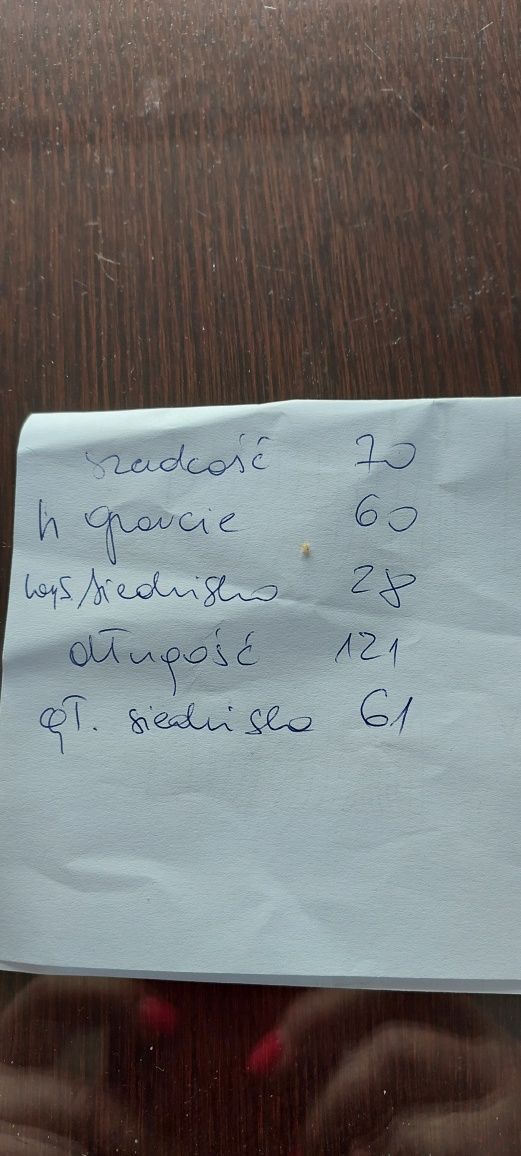 szerkość 70
h oparcie 60
wys siedzisko 28
długość 121
gł. siedzisko 61